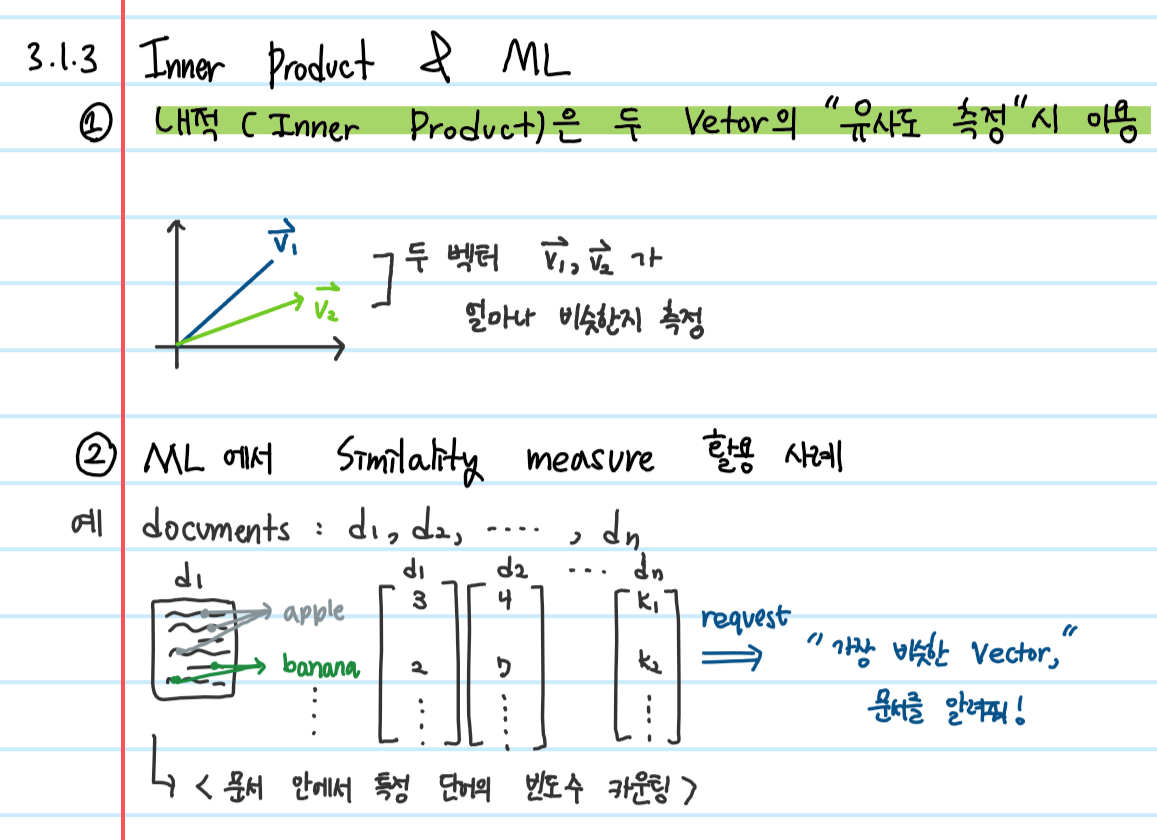 3.1.3 Inner Product & ML
① 내적 (Inner Product)은 두 Vetor의 "유사도 측정"시 이용
V₁
V₂
두 벡터 V₁, V₂ 가
얼마나 비슷한지 측정
② ML 에서 Similality measure 활용 사례
예 documents : d₁, d₂, ····, dₙ
d₁ d₁ d₂ ··· dₙ
apple 3 4 k₁ request
banana 2 5 k₂ "가장 비슷한 Vector,"
문서를 알려줘!
< 문서 안에서 특정 단어의 빈도수 카운팅 >